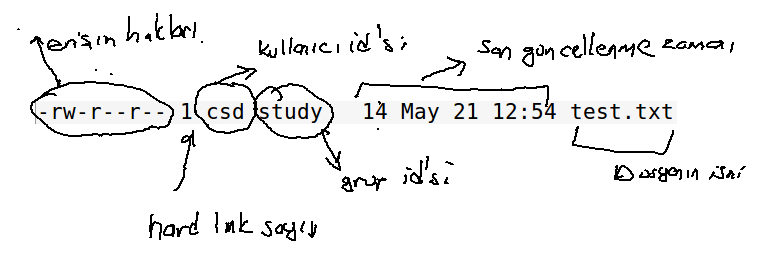 erişim hakları.
kullanıcı id'si
son güncellenme zamanı
-rw-r--r-- 1 csd study 14 May 21 12:54 test.txt
grup id'si
Dosyanın ismi
hard link sayısı